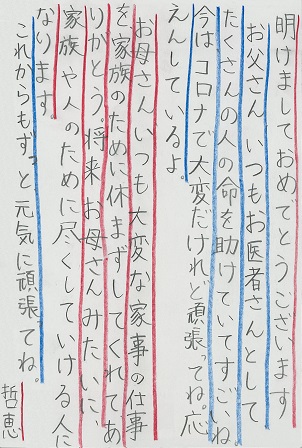 明けましておめでとうございます
お父さんいつもお医者さんとして
たくさんの人の命を助けていてすごいね
今はコロナで大変だけれど頑張ってね。応
えんしているよ。
お母さんいつも大変な家事の仕事
を家族のために休まずしてくれてあ
りがとう。将来お母さんみたいに、
家族や人のために尽くしていける人に
なります。
これからもずっと元気に頑張てね。
哲恵